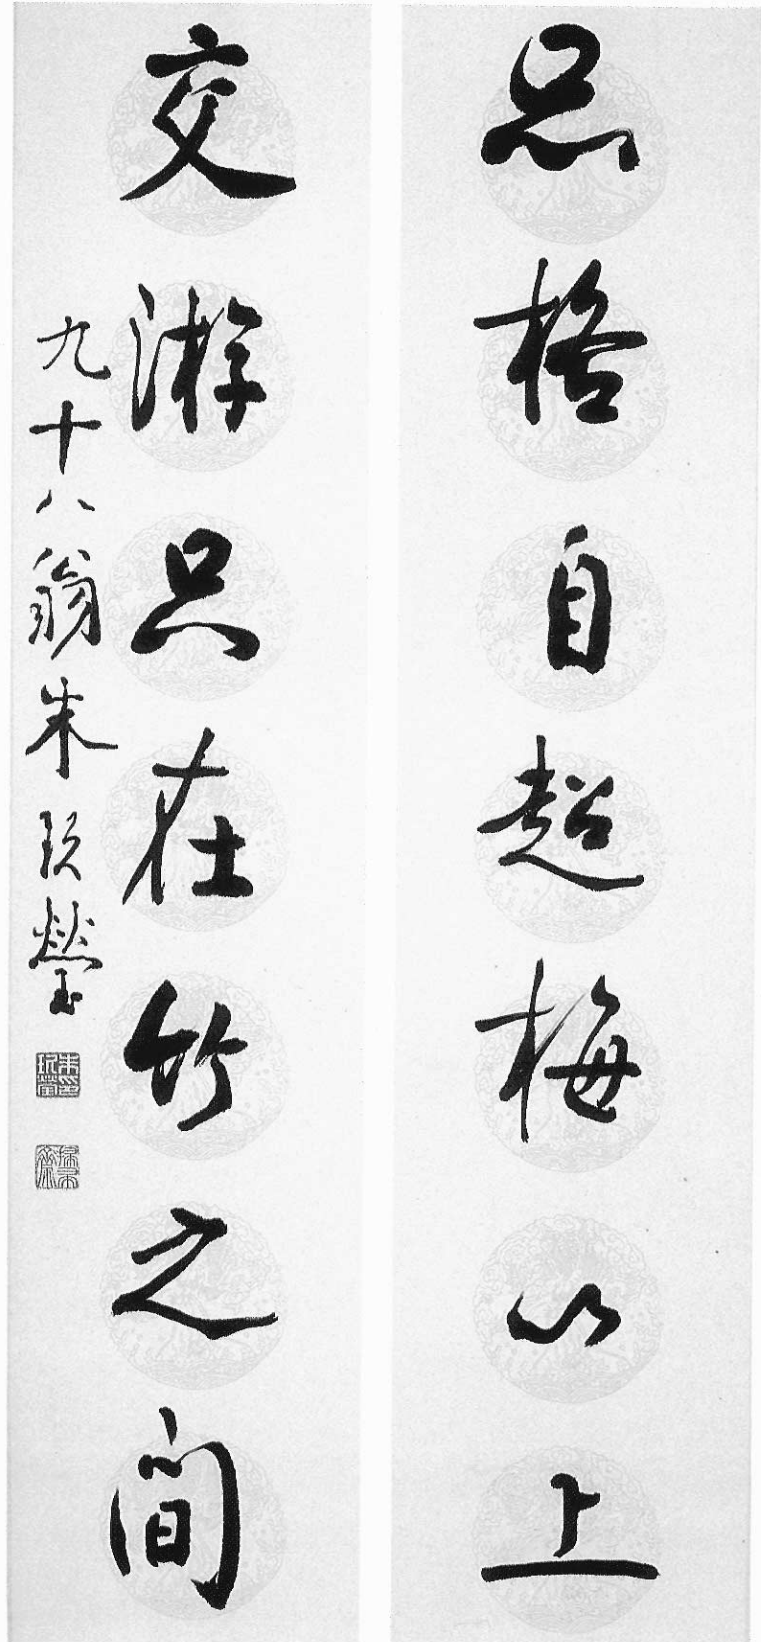 品格自超梅以上
交游只在竹之間
九十八翁朱玖瑩
朱玖瑩印